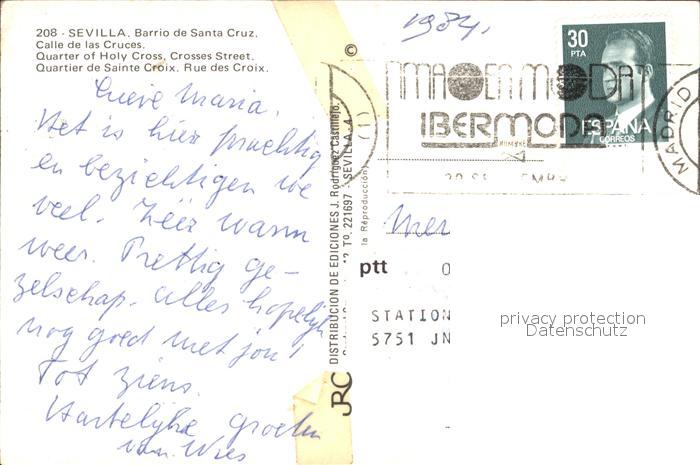 208 - SEVILLA. Barrio de Santa Cruz.
Calle de las Cruces.
Quarter of Holy Cross, Crosses Street.
Quartier de Sainte Croix, Rue des Croix.
Lieve Maria,
Het is hier prachtig
en bezichtigen we
veel. Zéér warm
weer. Prettig ge-
zelschap. Alles hopelijk
nog goed met jou!
Tot ziens.
Hartelijke groeten
van Wies
©
la Reproducción
DISTRIBUCION DE EDICIONES J. Rodríguez Castillejo.
Tº. 221697 - SEVILLA-4
JRC
1984.
30
PTA
ESPAÑA
CORREOS
IMAGEN MODA
IBERMODA
HOMBRE
MADRID
Mer
ptt
0
STATION
5751 JN
privacy protection
Datenschutz